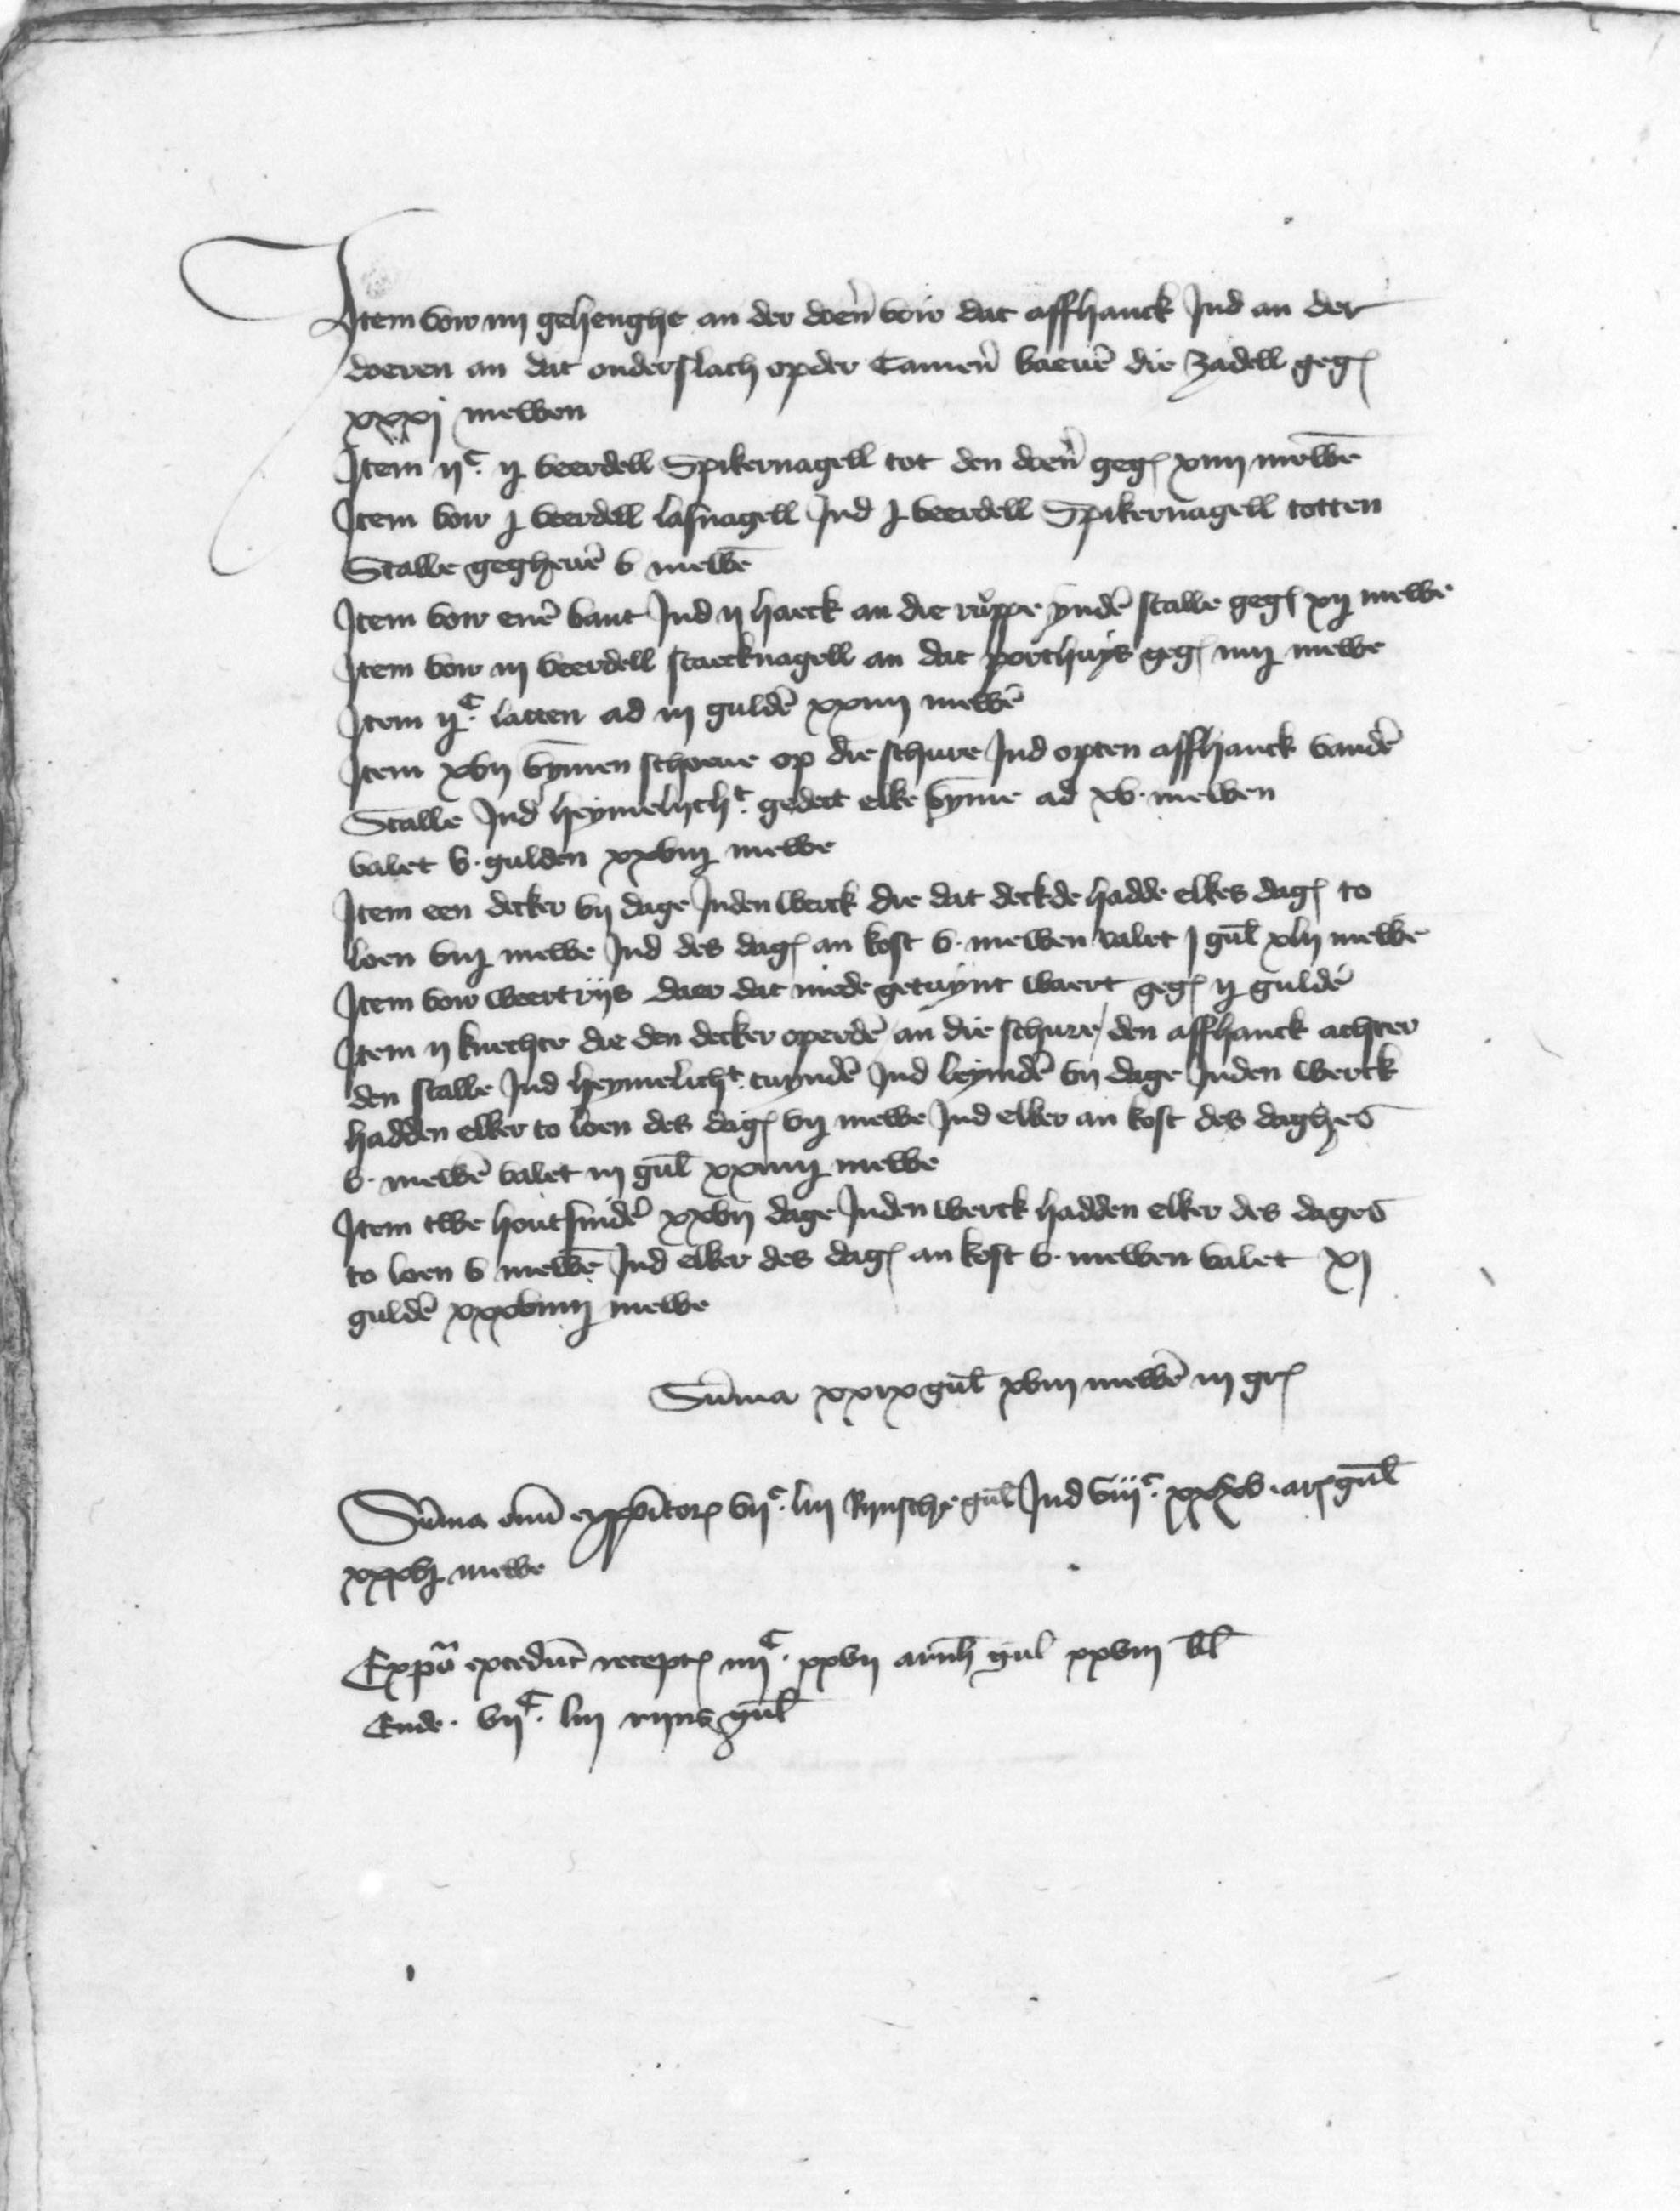 Item voir iiij gehenght an der doeñ voir dat affhanck Ind an der
doeren an dat onderslach opder Cameñ baeuē die zadell geg
xxxj mewen
Item ijc. ij veerdell Spikernagell tot den doeñ geg xiiij mewē
Item voir j veerdell lasnagell Ind j veerdell Spikernagell totten
Stalle gegheuē v mewē
Item voir enē bant Ind ij haeck an die ruppe ynden stalle geg xij mewe
Item voir iij veerdell staecknagell an dat porthuys geg iiij mewe
Item ijc. latten ad iij guldē xxiiij mewē
Item xvij vymen schoeue op die schure Ind opten affhanck vandē
Stalle Ind heymelicht. gedect elke vyme ad xv. mewen
valet v. gulden xxviij mewe
Item een decker vij dage Inden werck die dat deckde hadde elkes dag to
loen viij mewe Ind des dag an kost v. mewen valet j gul xlij mewe
Item voir weertrijs daer dat mede getuynt waert geg ij guldē
Item ij knechte die den decker operdē an die schure / den affhanck achter
den stalle Ind heymelicht. tuyndē Ind leymdē vij dage Inden werck
hadden elker to loen des dag vij mewe Ind elker an kost des daghes
v. mewē valet iij gul xxiiij mewe
Item twe houtsnidē xxvij dage Inden werck hadden elker des dages
to loen v mewē Ind elker des dag an kost v. mewen valet xj
guldē xxxviiij mewe
Sūma xxix gul xviij mewē iij gr
Sūma om̄ expōitor vijc. liij Rijnsche gul Ind viijc. xxxv. ar gul
xxxvj mewe
Expōā excedūt recept iiijc. xxvij arnh gul xxviij kl
Ende. vijc. liij rijns gul